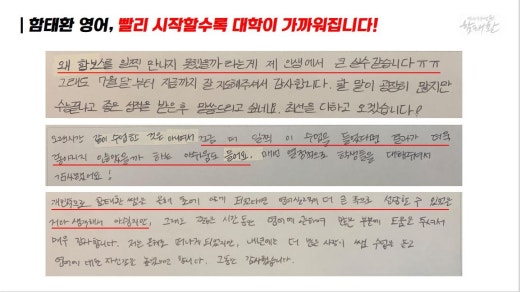 | 함태환 영어, 빨리 시작할수록 대학이 가까워집니다!
함태환
왜 함보스를 일찍 만나지 못했을까 라는게 제 인생에서 큰 실수같습니다 ㅠㅠ
그래도 7월달부터 지금까지 잘 지도해주셔서 감사합니다. 할 말이 굉장히 많지만
수능끝나고 좋은 성적을 받은후 말씀드리고 싶네요. 최선을 다하고 오겠습니다!
오랜시간 같이 수업한 것은 아니여서 조금 더 일찍 이 수업을 들었다면 결과가 더욱
좋아지지 않았을까 하는 아쉬움도 들어요. 매번 열정적으로 학생들을 대해주셔서
감사했어요!
개인적으로 함태환 쌤을 올해 말이 아닌 더 큰 폭으로 성장할 수 있었을
거라 생각해서 아쉽지만, 그래도 짧은 시간동안 영어에 관하여 많은 부분에 도움을 주셔서
매우 감사합니다. 저는 올해로 떠나게 되었지만, 내년에는 더 많은 사람이 쌤 수업을 듣고
영어에 대한 자신감을 합니다. 그동안 감사했습니다.